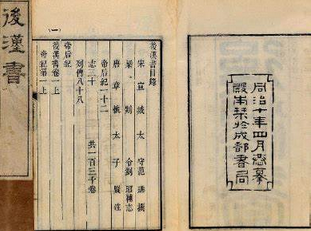 後漢書
後漢書目錄
宋宣城太守范曄撰
梁剡令劉昭補志
唐章懷太子賢注
帝后紀一十二
志三十
列傳八十八
共一百三十卷
帝后紀
後漢書卷一上
帝紀第一上
同治十年四月恭摹
殿本栞於成都書局